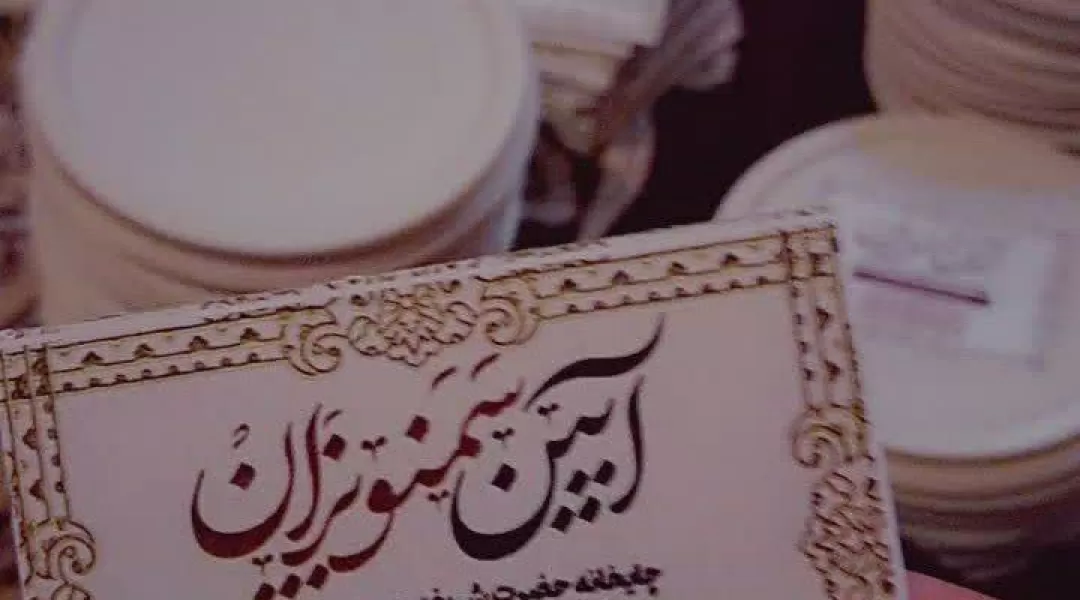 آیین سَمَنوپَزان
چایخانه حضرت